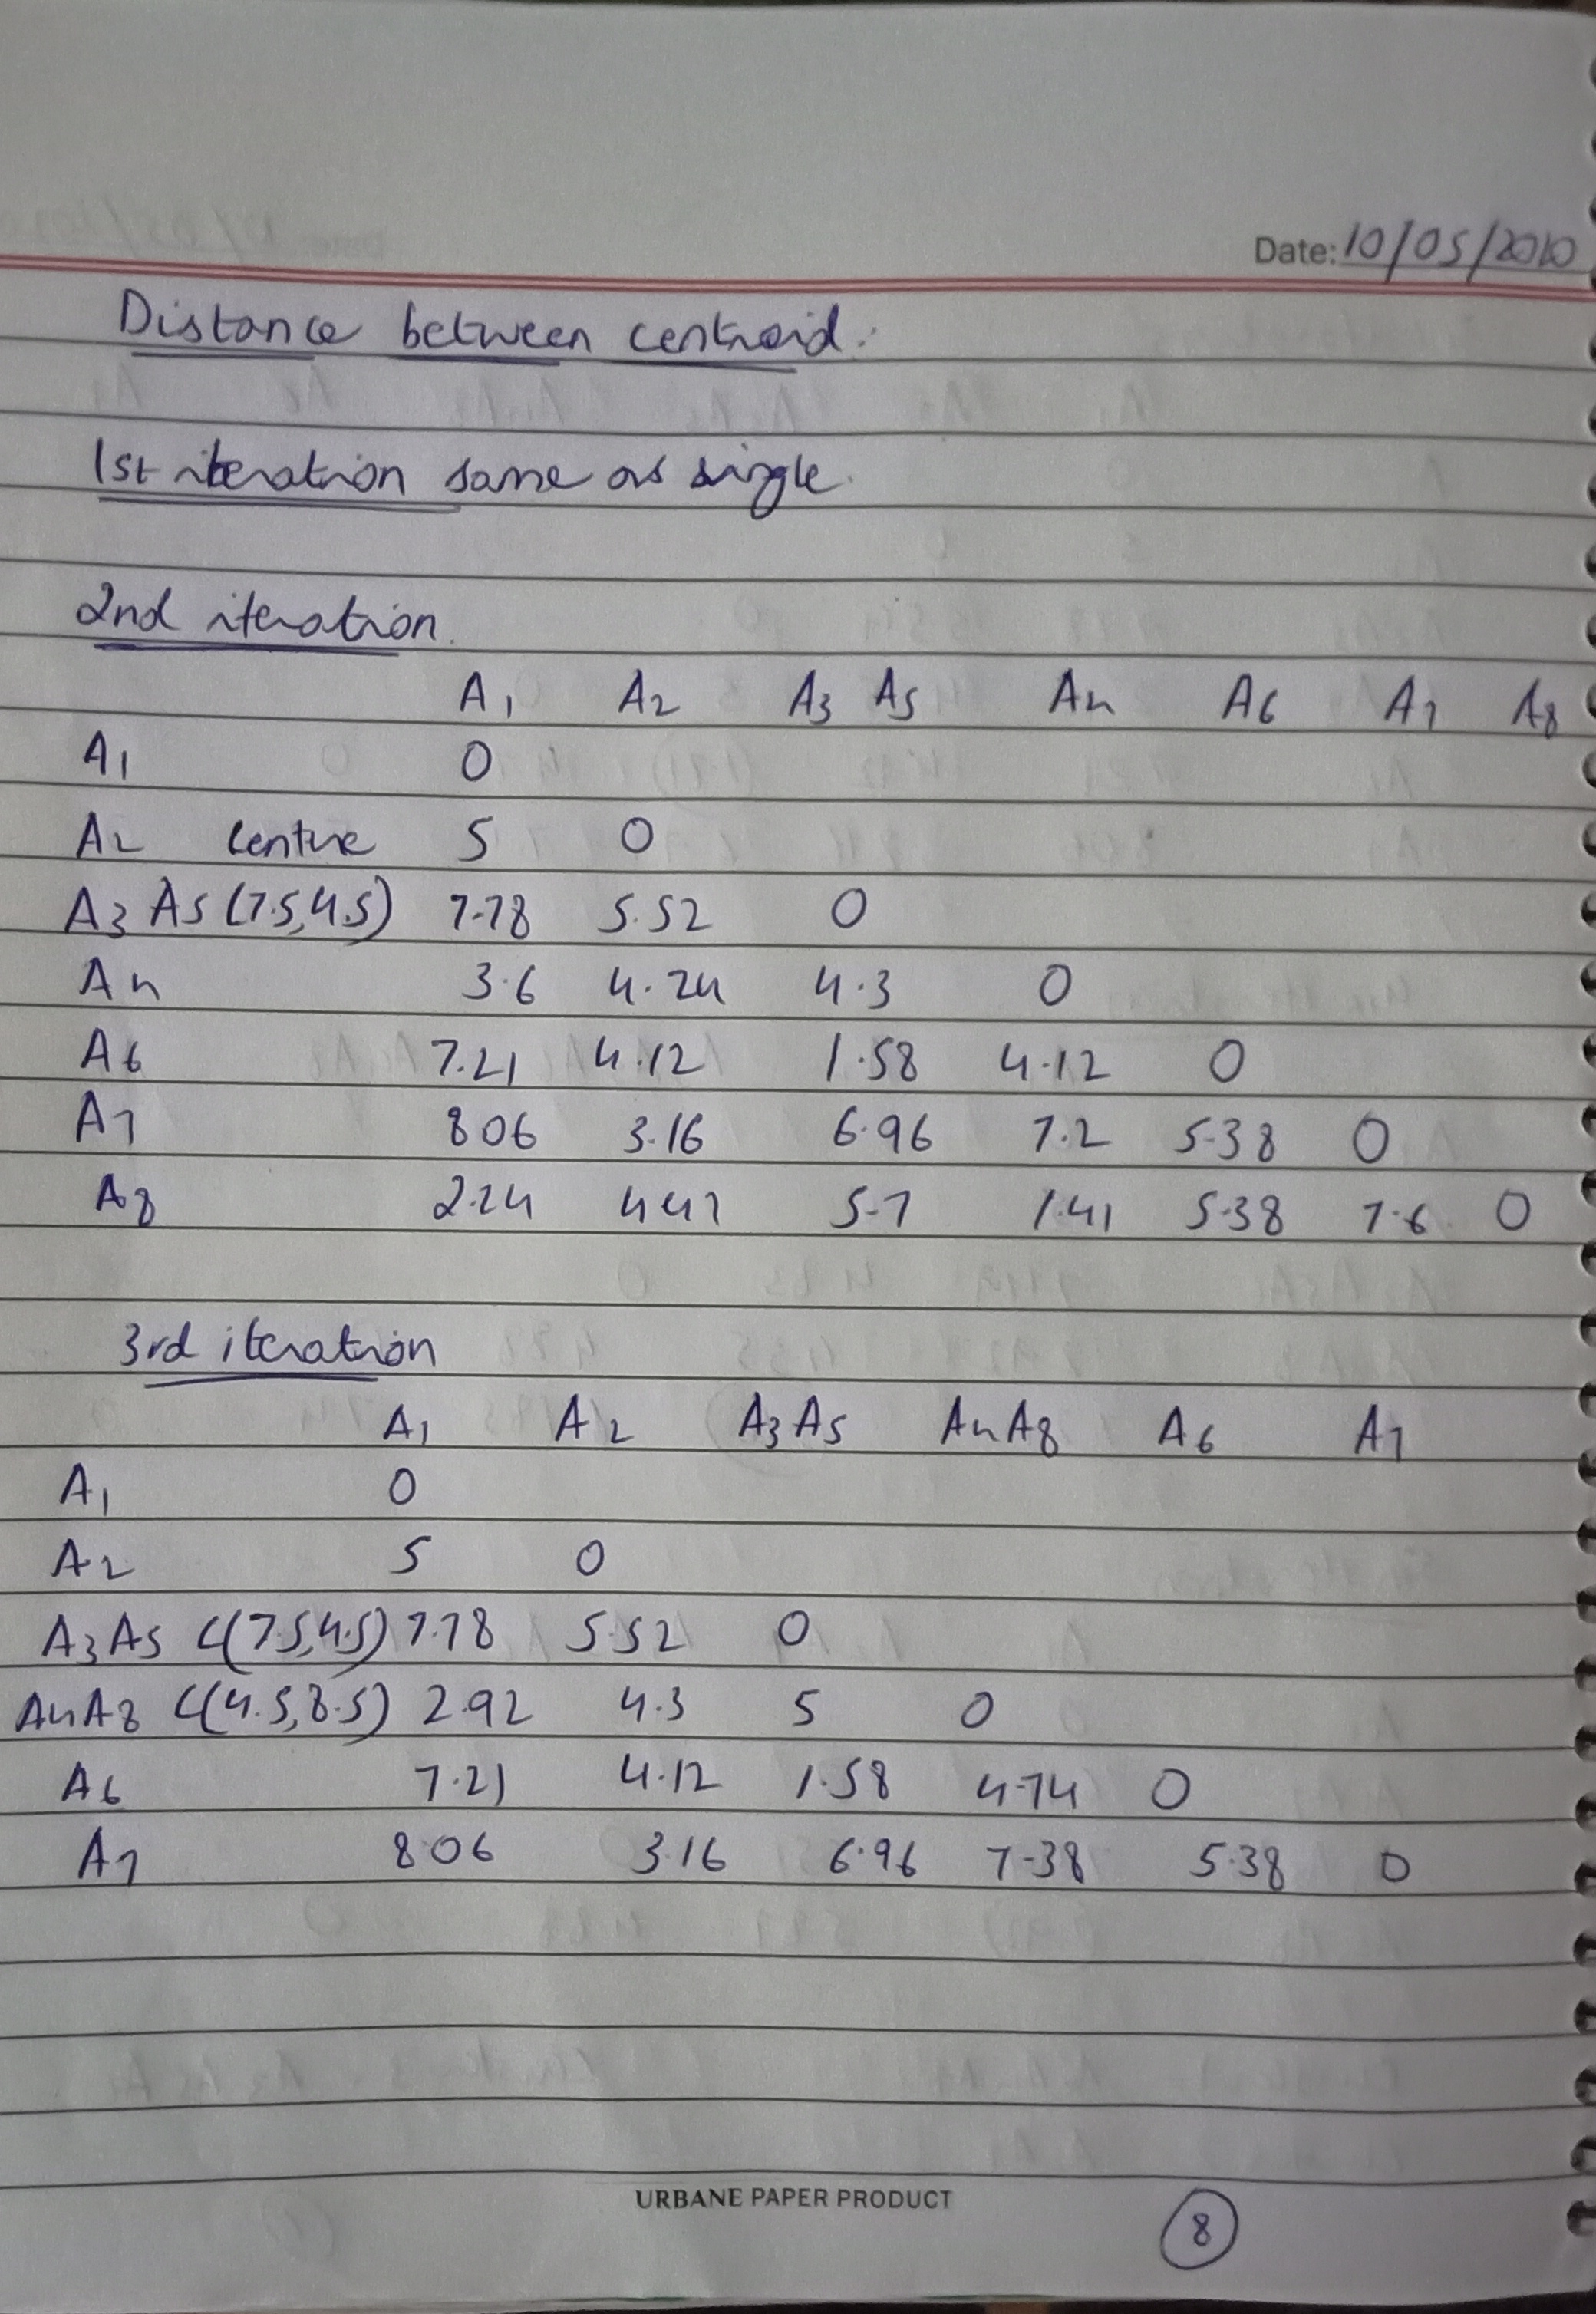 Date: 10/05/2020
Distance between centroid.
1st iteration same as single.
2nd iteration.
A1 A2 A3 A5 A4 A6 A7 A8
A1 0
A2 centre 5 0
A3 A5 (7.5,4.5) 7.78 5.52 0
A4 3.6 4.24 4.3 0
A6 7.21 4.12 1.58 4.12 0
A7 8.06 3.16 6.96 7.2 5.38 0
A8 2.24 4.47 5.7 1.41 5.38 7.6 0
3rd iteration
A1 A2 A3A5 A4A8 A6 A7
A1 0
A2 5 0
A3A5 C(7.5,4.5) 7.78 5.52 0
A4A8 C(4.5,8.5) 2.92 4.3 5 0
A6 7.21 4.12 1.58 4.74 0
A7 8.06 3.16 6.96 7.38 5.38 0
URBANE PAPER PRODUCT
8